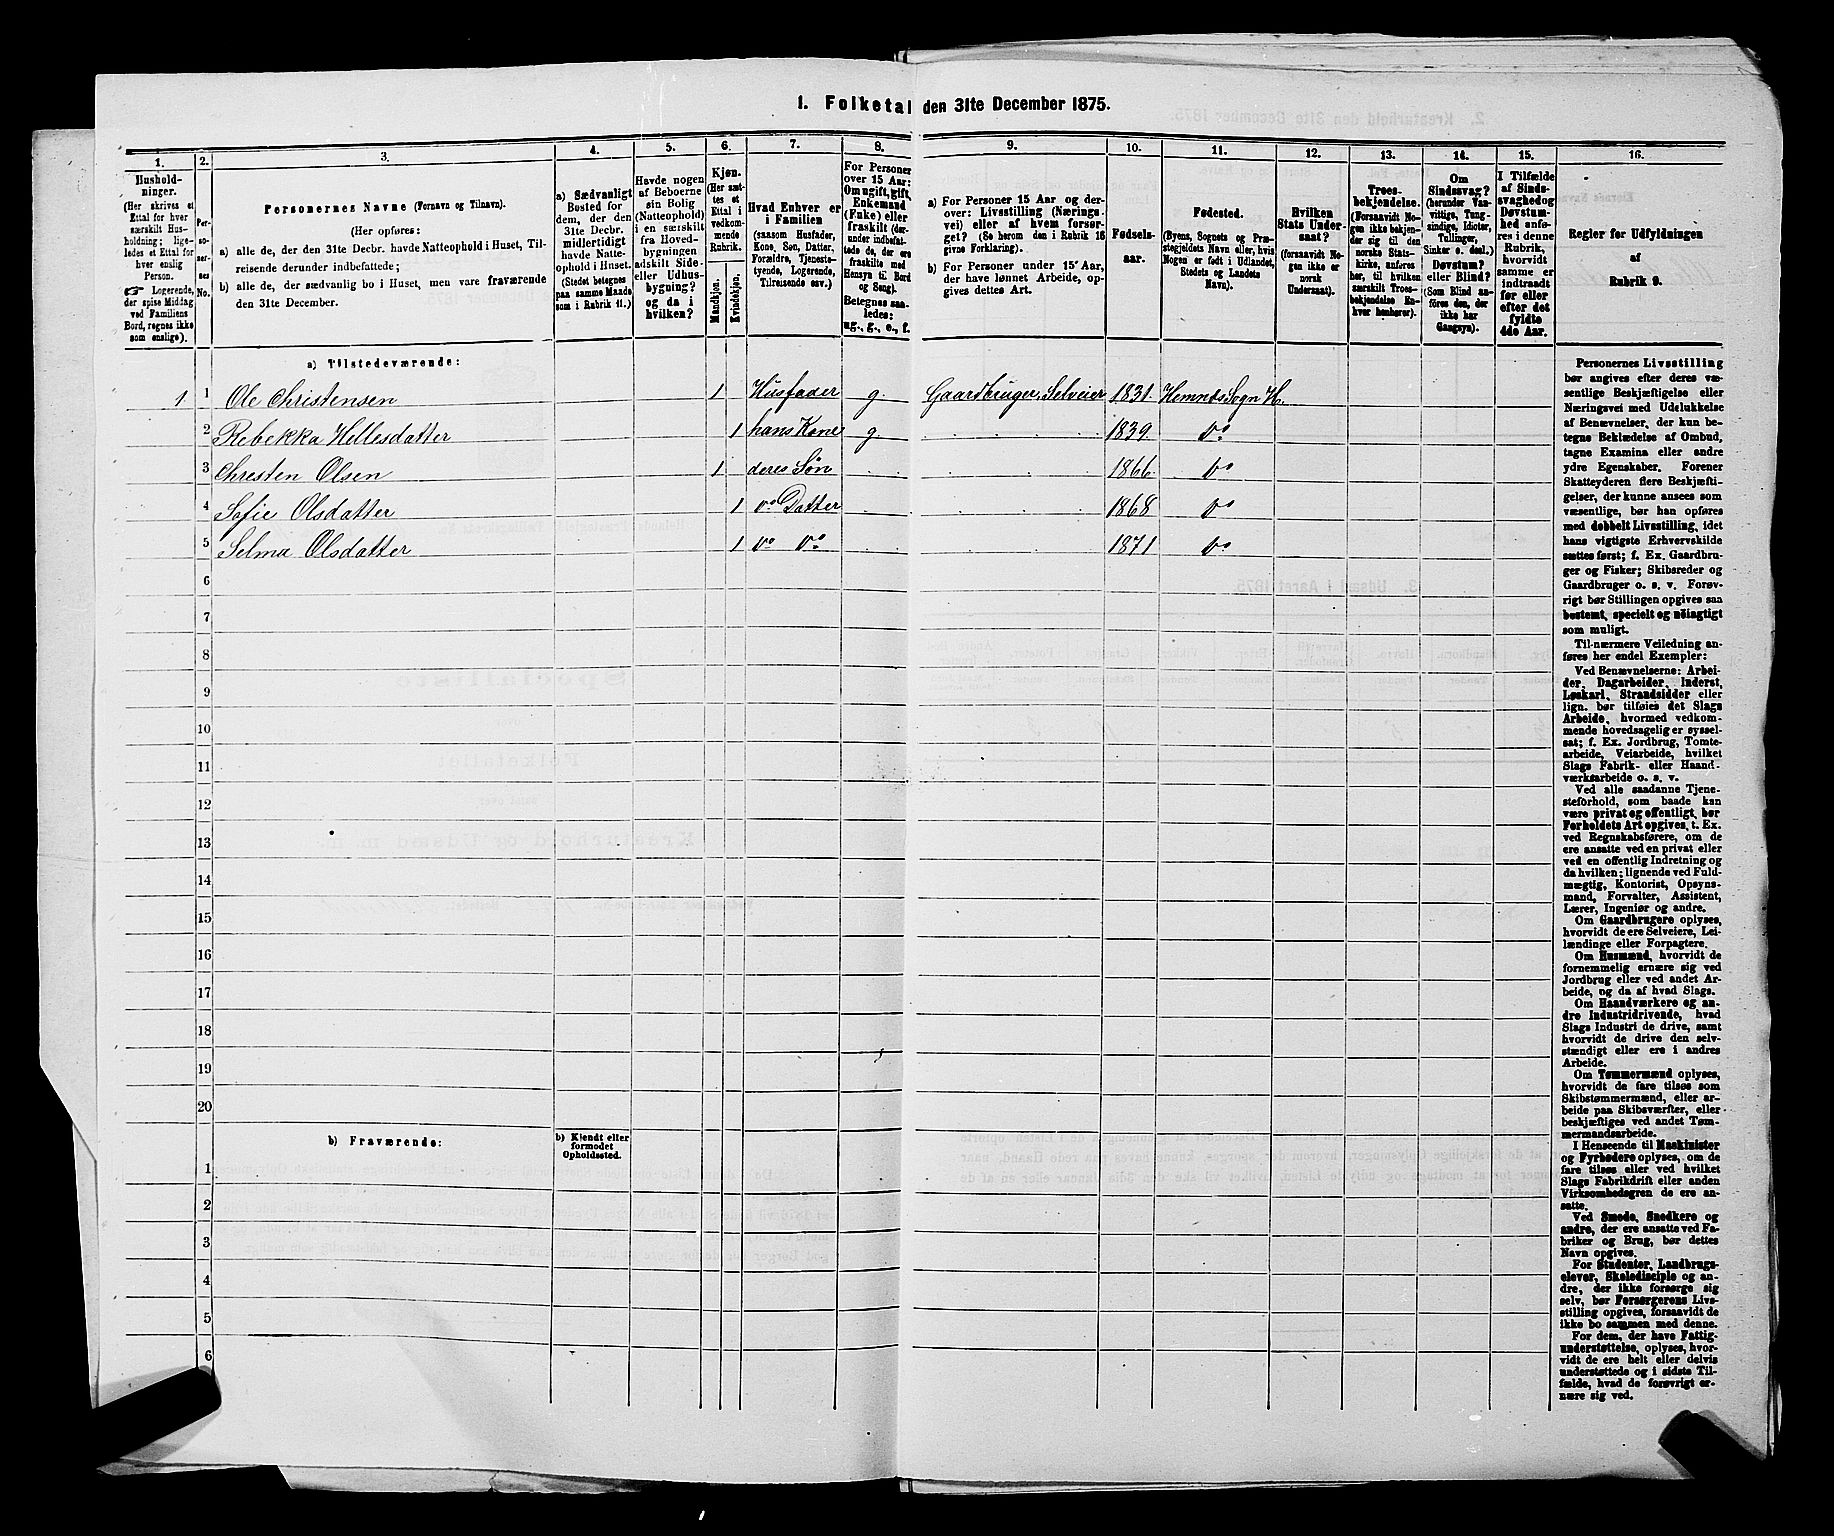 1. Folketal den 31te December 1875.
1.
2.
3.
4.
5.
6.
7.
8.
9.
10.
11.
12.
13.
14.
15.
16.
Hushold-
ninger.
(Her skrives et
Ettal for hver
særskilt Hus-
holdning; lige-
ledes et Ettal for
hver enslig
Person.
☞ Logerende,
der spise Middag
ved Familiens
Bord, regnes ikke
som enslige).
Per-
so-
ner-
nes
No.
Personernes Navne (Fornavn og Tilnavn).
(Her opføres:
a) alle de, der den 31te Decbr. havde Natteophold i Huset, Til-
reisende derunder indbefattede;
b) alle de, der sædvanlig bo i Huset, men vare fraværende
den 31te December.
a) Sædvanligt
Bosted for
dem, der den
31te Decbr.
midlertidigt
havde Natte-
ophold i Huset.
(Stedet betegnes
paa samme Maade
som i Rubrik 11.)
Havde nogen
af Beboerne
sin Bolig
(Natteophold)
i en særskilt
fra Hoved-
bygningen
adskilt Side-
eller Udhus-
bygning?
og da i
hvilken?
Kjøn.
(Her sæt-
tes et
Ettal i
vedkom-
mende
Rubrik.
Mandkjøn.
Kvindekjøn.
Hvad Enhver er
i Familien
(saasom Husfader,
Kone, Søn, Datter,
Forældre, Tjeneste-
tyende, Logerende,
Tilreisende osv.)
For Personer
over 15 Aar:
Om ugift, gift,
Enkemand
(Enke) eller
fraskilt (der-
under indbefat-
tede de, der ere
fraskilte med
Hensyn til Bord
og Seng).
Betegnes saa-
ledes:
ug., g., e., f.
a) For Personer 15 Aar og der-
over: Livsstilling (Nærings-
vei) eller af hvem forsør-
get? (Se herom den i Rubrik 16
givne Forklaring).
b) For Personer under 15 Aar,
der have lønnet Arbeide, op-
gives dettes Art.
Fødsels-
aar.
Fødested.
(Byens, Sognets og Præ-
stegjeldets Navn eller, hvis
Nogen er født i Udlandet,
Stedets og Landets
Navn).
Hvilken
Stats Under-
saat?
(forsaavidt No-
gen ikke er
norsk
Undersaat).
Troes-
bekjendelse.
(Forsaavidt No-
gen ikke bekjen-
der sig til den
norske Stats-
kirke, anføres
her, til hvilken
særskilt Troes-
bekjendelse En-
hver henhører).
Om
Sindssvag?
(herunder Van-
vittige, Tung-
sindige, Idioter,
Tullinger,
Sinker o. desl.)
Døvstum?
eller Blind?
(Som Blind an-
føres den, der
ikke har
Gangsyn).
I Tilfælde
af Sinds-
svaghed og
Døvstum-
hed anfø-
res i denne
Rubrik,
hvorvidt
samme er
indtraadt
før eller
efter det
fyldte
4de Aar.
Regler for Udfyldningen
af
Rubrik 9.
a) Tilstedeværende:
1 1 Ole Christensen 1 Husfader g. Gaardbruger, Selveier 1831. Hemnæs Sogn H.
2 Rebekka Hellesdatter 1 hans Kone g. 1839. do
3 Chresten Olsen 1 deres Søn 1866. do
4 Sofie Olsdatter 1 do Datter 1868 do
5 Selma Olsdatter 1 do do 1871 do
6
7
8
9
10
11
12
13
14
15
16
17
18
19
20
b) Fraværende:
b) Kjendt eller
formodet
Opholdssted.
1
2
3
4
5
6
Personernes Livsstilling
bør angives efter deres væ-
sentlige Beskjæftigelse eller
Næringsvei med Udelukkelse
af Benævnelser, der kun be-
tegne Beklædelse af Ombud,
tagne Examina eller andre
ydre Egenskaber. Forener
Skatteyderen flere Beskjæfti-
gelser, der kunne ansees som
væsentlige, bør han opføres
med dobbelt Livsstilling, idet
hans vigtigste Erhvervskilde
sættes først; f. Ex. Gaardbru-
ger og Fisker; Skibsreder og
Gaardbruger o. s. v. Forøv-
rigt bør Stillingen opgives saa
bestemt, specielt og nøiagtigt
som muligt.
Til nærmere Veiledning an-
føres her endel Exempler:
Ved Benævnelserne: Arbei-
der, Dagarbeider, Inderst,
Løskarl, Strandsidder eller
lign. bør tilføies det Slags
Arbeide, hvormed vedkom-
mende hovedsagelig er syssel-
sat; f. Ex. Jordbrug, Tomte-
arbeide, Veiarbeide, hvilket
Slags Fabrik- eller Haand-
værksarbeide o. s. v.
Ved alle saadanne Tjene-
steforhold, som baade kan
være privat og offentligt, bør
Forholdets Art opgives, t. Ex.
ved Regnskabsførere, om de
ere ansatte ved en privat eller
ved en offentlig Indretning og
da hvilken; lignende ved Fuld-
mægtig, Kontorist, Opsyns-
mand, Forvalter, Assistent,
Lærer, Ingeniør og andre.
Om Gaardbrugere oplyses,
hvorvidt de ere Selveiere, Lei-
lændinge eller Forpagtere.
Om Husmænd, hvorvidt de
fornemmelig ernære sig ved
Jordbrug eller ved andet Ar-
beide, og da af hvad Slags.
Om Haandværkere og an-
dre Industridrivende, hvad
Slags Industri de drive, samt
hvorvidt de drive den selv-
stændigt eller ere i andres
Arbeide.
Om Tømmermænd oplyses,
hvorvidt de fare tilsøs som
Skibstømmermænd, eller ar-
beide paa Skibsværfter, eller
beskjæftiges ved andet Tøm-
mermandsarbeide.
I Henseende til Maskinister
og Fyrbødere oplyses, om de
fare tilsøs eller ved hvilket
Slags Fabrikdrift eller anden
Virksomhedsgren de ere an-
satte.
Ved Smede, Snedkere og
andre, der ere ansatte ved Fa-
briker og Brug, bør dettes
Navn opgives.
For Studenter, Landbrugs-
elever, Skoledisciple og an-
dre, der ikke forsørge sig
selv, bør Forsørgerens Livs-
stilling opgives, forsaavidt de
ikke bo sammen med denne.
For dem, der have Fattig-
understøttelse, oplyses, hvor-
vidt de ere helt eller delvis
understøttede og i sidste Til-
fælde, hvad de forøvrigt er-
nære sig ved.